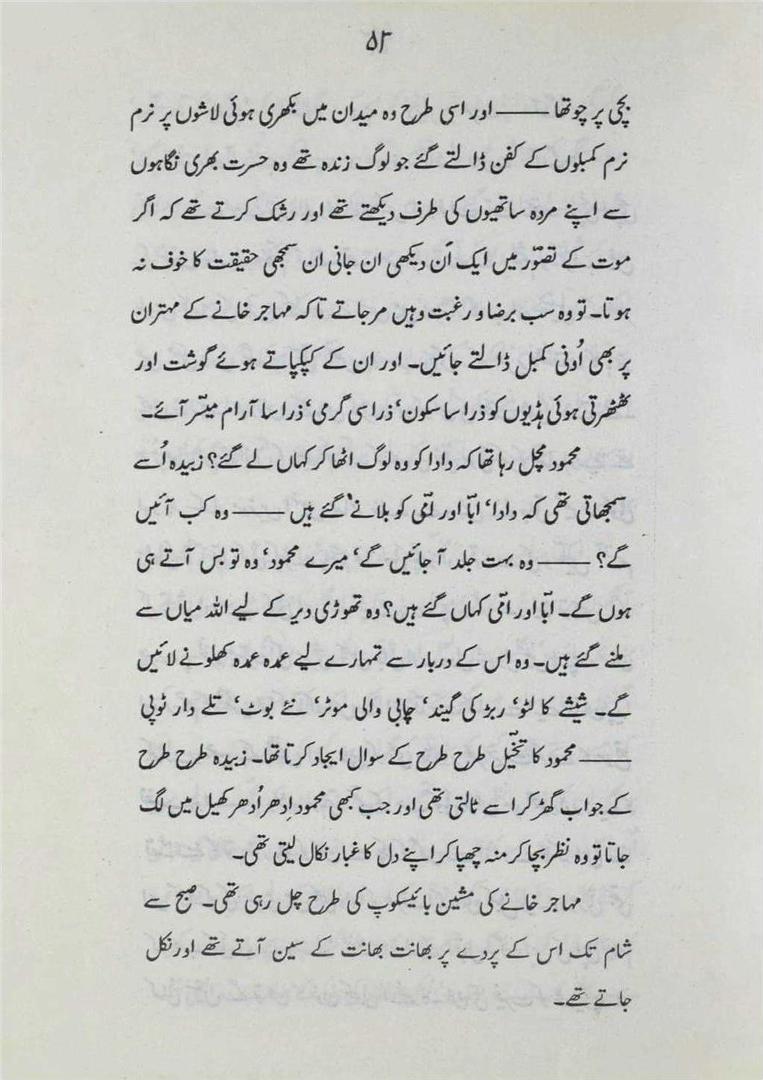 ۵۳
بچی پر چوتھا ——— اور اسی طرح وہ میدان میں بکھری ہوئی لاشوں پر نرم
نرم کمبلوں کے کفن ڈالتے گئے جو لوگ زندہ تھے وہ حسرت بھری نگاہوں
سے اپنے مردہ ساتھیوں کی طرف دیکھتے تھے اور رشک کرتے تھے کہ اگر
موت کے تصوّر میں ایک اَن دیکھی ان جانی ان سمجھی حقیقت کا خوف نہ
ہوتا۔ تو وہ سب برضا و رغبت وہیں مرجاتے تاکہ مہاجر خانے کے مہتران
پر بھی اُونی کمبل ڈالتے جائیں۔ اور ان کے کپکپاتے ہوئے گوشت اور
ٹھٹھرتی ہوئی ہڈیوں کو ذرا سا سکون‘ ذرا سی گرمی‘ ذرا سا آرام میسّر آئے۔
محمود مچل رہا تھا کہ دادا کو وہ لوگ اٹھا کر کہاں لے گئے؟ زبیدہ اُسے
سمجھاتی تھی کہ دادا‘ ابّا اور امّی کو بلانے گئے ہیں ——— وہ کب آئیں
گے؟ ——— وہ بہت جلد آ جائیں گے‘ میرے محمود‘ وہ تو بس آتے ہی
ہوں گے۔ ابّا اور امّی کہاں گئے ہیں؟ وہ تھوڑی دیر کے لیے اللہ میاں سے
ملنے گئے ہیں۔ وہ اس کے دربار سے تمہارے لیے عمدہ عمدہ کھلونے لائیں
گے۔ شیشے کا لٹو‘ ربڑ کی گیند‘ چابی والی موٹر‘ نئے بوٹ‘ تلے دار ٹوپی
——— محمود کا تخیّل طرح طرح کے سوال ایجاد کرتا تھا۔ زبیدہ طرح طرح
کے جواب گھڑ کر اسے ٹالتی تھی اور جب کبھی محمود اِدھر اُدھر کھیل میں لگ
جاتا تو وہ نظر بچا کر منہ چھپا کر اپنے دل کا غبار نکال لیتی تھی۔
مہاجر خانے کی مشین بائیسکوپ کی طرح چل رہی تھی۔ صبح سے
شام تک اس کے پردے پر بھانت بھانت کے سین آتے تھے اور نکل
جاتے تھے۔